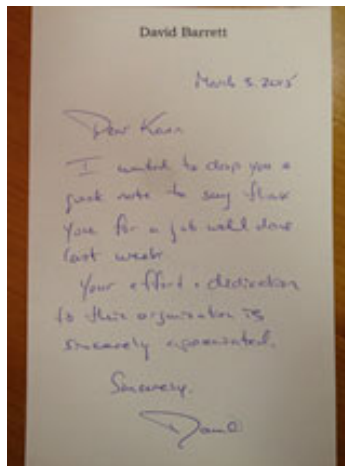 David Barrett
March 3. 2015
Dear Karen
I wanted to drop you a
quick note to say thank
you for a job well done
last week
Your effort + dedication
to this organisation is
sincerely appreciated.
Sincerely,
David